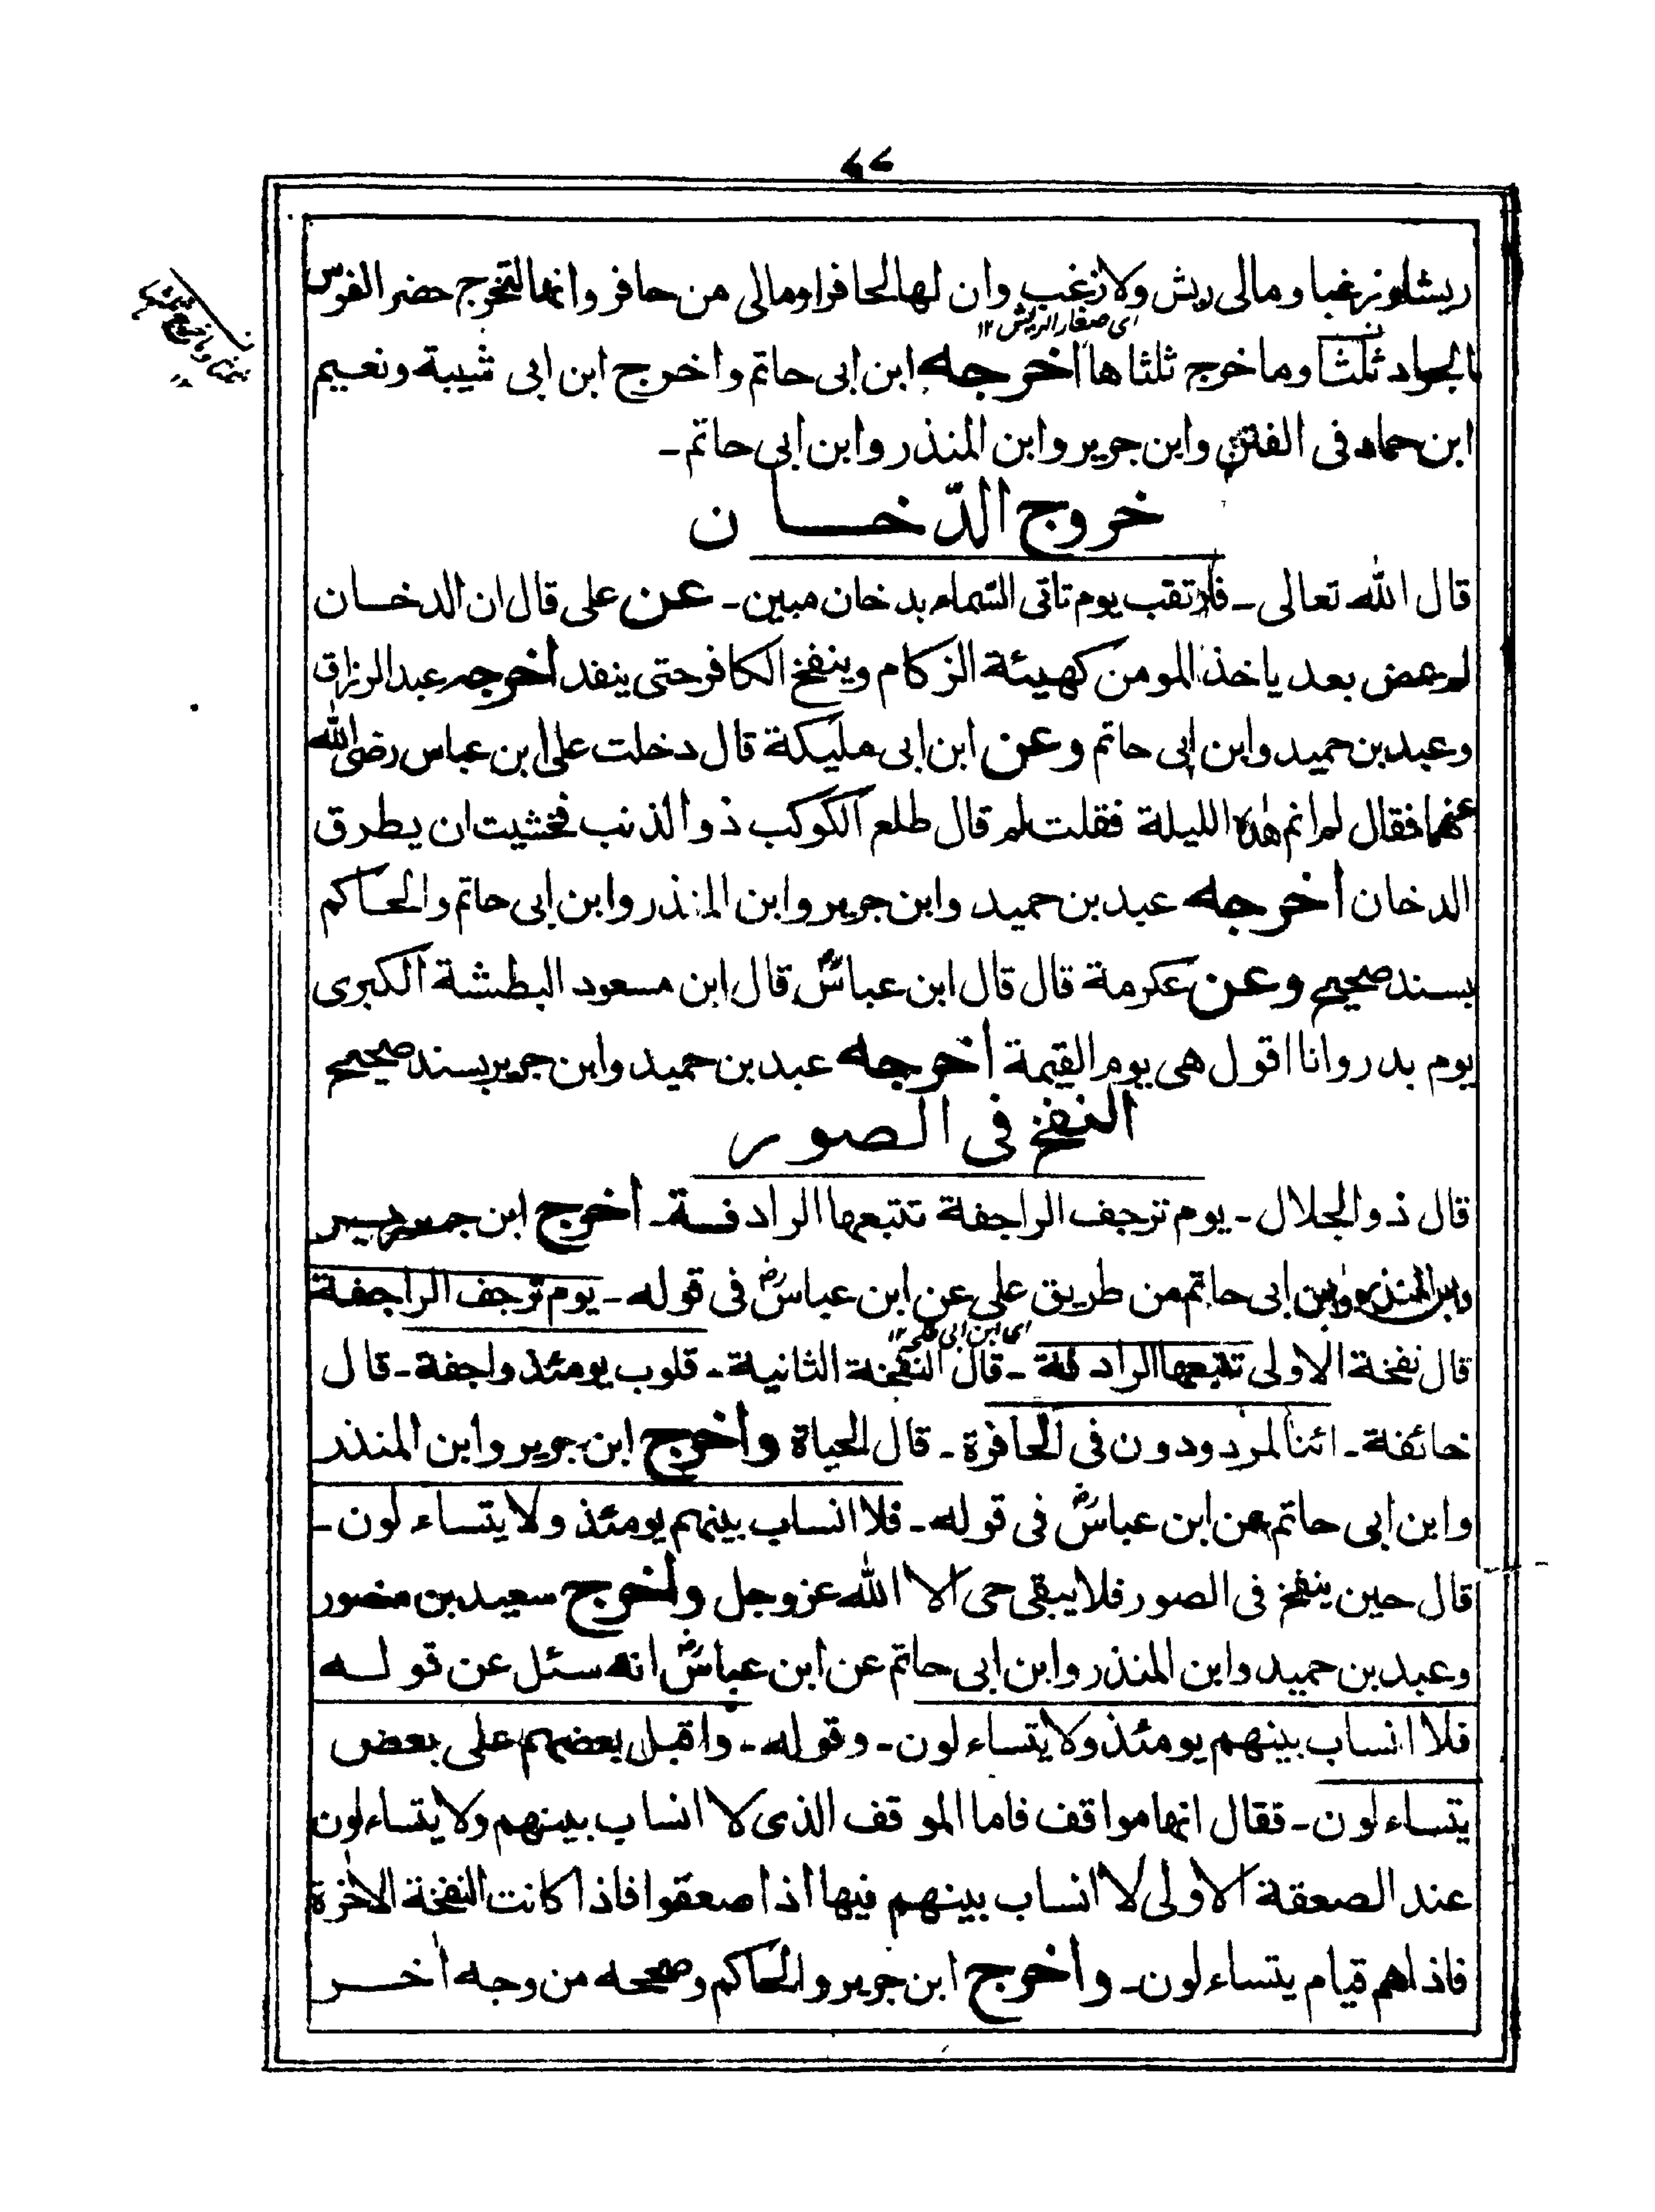 ريشا وزغبا ومالى ريش ولا زغب وان لها لحافرا ومالى من حافر وانها لتخرج حضر الفرس
اى صغار الريش ١٢
الجواد ثلثا وما خرج ثلثاها اخرجه ابن ابى حاتم واخرج ابن ابى شيبة ونعيم
ابن حماد فى الفتن وابن جرير وابن المنذر وابن ابى حاتم ـ
خروج الدّخان
قال الله تعالى ـ فارتقب يوم تاتى السّماء بدخان مبين ـ عن على قال ان الدخان
لم يمض بعد ياخذ المومن كهيئة الزكام وينفخ الكافر حتى ينفد اخرجه عبد الرزاق
وعبد بن حميد وابن ابى حاتم وعن ابن ابى مليكة قال دخلت على ابن عباس رضى الله
عنهما فقال لم انم هذه الليلة فقلت لم قال طلع الكوكب ذو الذنب فخشيت ان يطرق
الدخان اخرجه عبد بن حميد وابن جرير وابن المنذر وابن ابى حاتم والحاكم
بسند صحيح وعن عكرمة قال قال ابن عباسؓ قال ابن مسعود البطشة الكبرى
يوم بدر وانا اقول هى يوم القيمة اخرجه عبد بن حميد وابن جرير بسند صحيح
النفخ فى الصور
قال ذو الجلال ـ يوم ترجف الراجفة تتبعها الرادفة ـ اخرج ابن جرير
وابن المنذر وابن ابى حاتم من طريق على عن ابن عباسؓ فى قوله ـ يوم ترجف الراجفة
اى ابن ابى طلحه ١٢
قال نفخة الاولى تتبعها الرادفة ـ قال النفخة الثانية ـ قلوب يومئذ واجفة ـ قال
خائفة ـ ائنا لمردودون فى الحافرة ـ قال الحياة واخرج ابن جرير وابن المنذر
وابن ابى حاتم عن ابن عباسؓ فى قوله ـ فلا انساب بينهم يومئذ ولا يتساءلون ـ
قال حين ينفخ فى الصور فلا يبقى حى الا الله عز وجل واخرج سعيد بن منصور
وعبد بن حميد وابن المنذر وابن ابى حاتم عن ابن عباسؓ انه سئل عن قوله
فلا انساب بينهم يومئذ ولا يتساءلون ـ وقوله ـ واقبل بعضهم على بعض
يتساءلون ـ فقال انها مواقف فاما الموقف الذى لا انساب بينهم ولا يتساءلون
عند الصعقة الاولى لا انساب بينهم فيها اذا صعقوا فاذا كانت النفخة الاخرة
فاذاهم قيام يتساءلون ـ واخرج ابن جرير والحاكم وصححه من وجه اخر